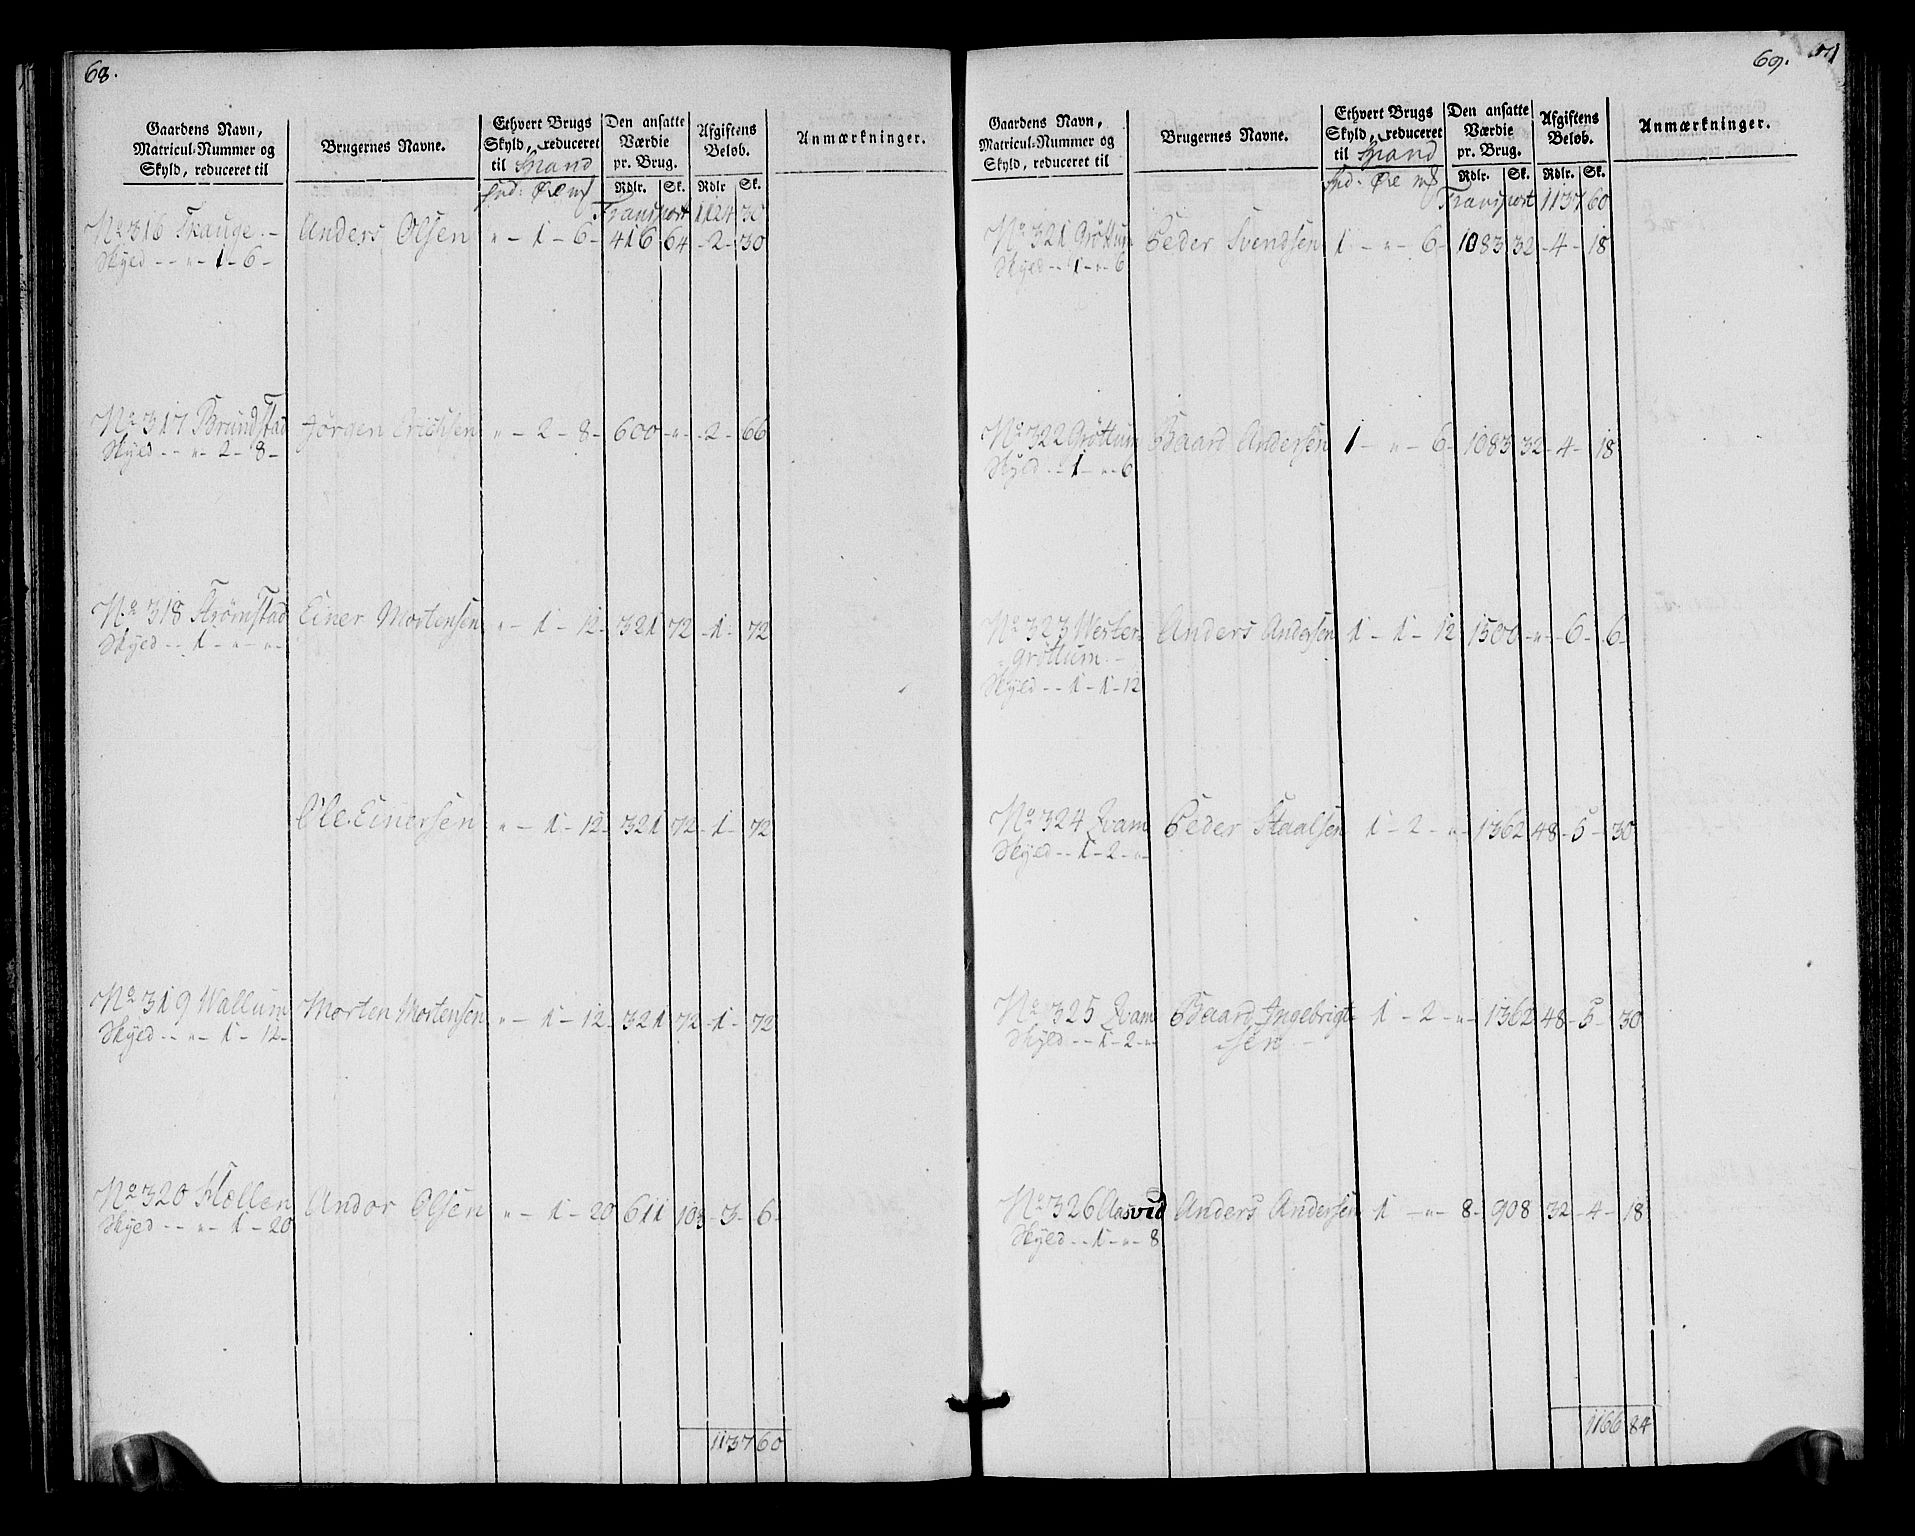 68.
Gaardens Navn, Matricul-Nummer og Skyld, reduceret til
Brugernes Navne.
Ethvert Brugs Skyld, reduceret til Spand
Den ansatte Værdie pr. Brug.
Afgiftens Beløb.
Anmærkninger.
Rdlr. Sk. Rdlr Sk.
Spd: Øre mß
Transport 1124 30
No 316 Skauge.- Anders Olsen " - 1 - 6 - 416 64 - 2 - 30
Skyld - - " - 1 - 6 -
No 317 Brundstad Jørgen Erichsen " - 2 - 8 - 600 - " - 2 - 66
Skyld - - " 2 - 8 -
No 318 Strømstad Einer Mortensen " - 1 - 12 - 321 72 - 1 - 72
Skyld - - 1 - " - " -
Ole Einersen " - 1 - 12 - 321 72 - 1 - 72
No 319 Wallum Morten Mortensen " - 1 - 12 - 321 72 - 1 - 72
Skyld - - " - 1 - 12 -
No 320 Hællen Andor Olsen " - 1 - 20 611 103 - 3 - 6 -
Skyld - - " - 1 - 20
1137 60
69. 71
Gaardens Navn, Matricul-Nummer og Skyld, reduceret til
Brugernes Navne.
Ethvert Brugs Skyld, reduceret til Spand
Den ansatte Værdie pr. Brug.
Afgiftens Beløb.
Anmærkninger.
Rdlr. Sk. Rdlr. Sk.
Spd: Øre mß
Transport 1137 60
No 321 Grøttum Peder Svendsen 1 - " - 6 - 1083 32 - 4 - 18
Skyld - - 1 - " - 6
No 322 Grøttum Baard Andersen 1 - " - 6 - 1083 32 - 4 - 18
Skyld - - 1 - " - 6
No 323 Wester- Anders Andersen 1 - 1 - 12 1500 - " - 6 - 6 -
grøttum.-
Skyld - - 1 - 1 - 12
No 324 Qvam Peder Staalsen 1 - 2 - " - 1362 48 - 5 - 30
Skyld - - 1 - 2 - " -
No 325 Qvam Baard Ingebrigt- 1 - 2 - " - 1362 48 - 5 - 30
Skyld - - 1 - 2 - " - sen
No 326 Aasvid Anders Andersen 1 - " - 8 - 908 32 - 4 - 18
Skyld - - 1 - " - 8
1166 84